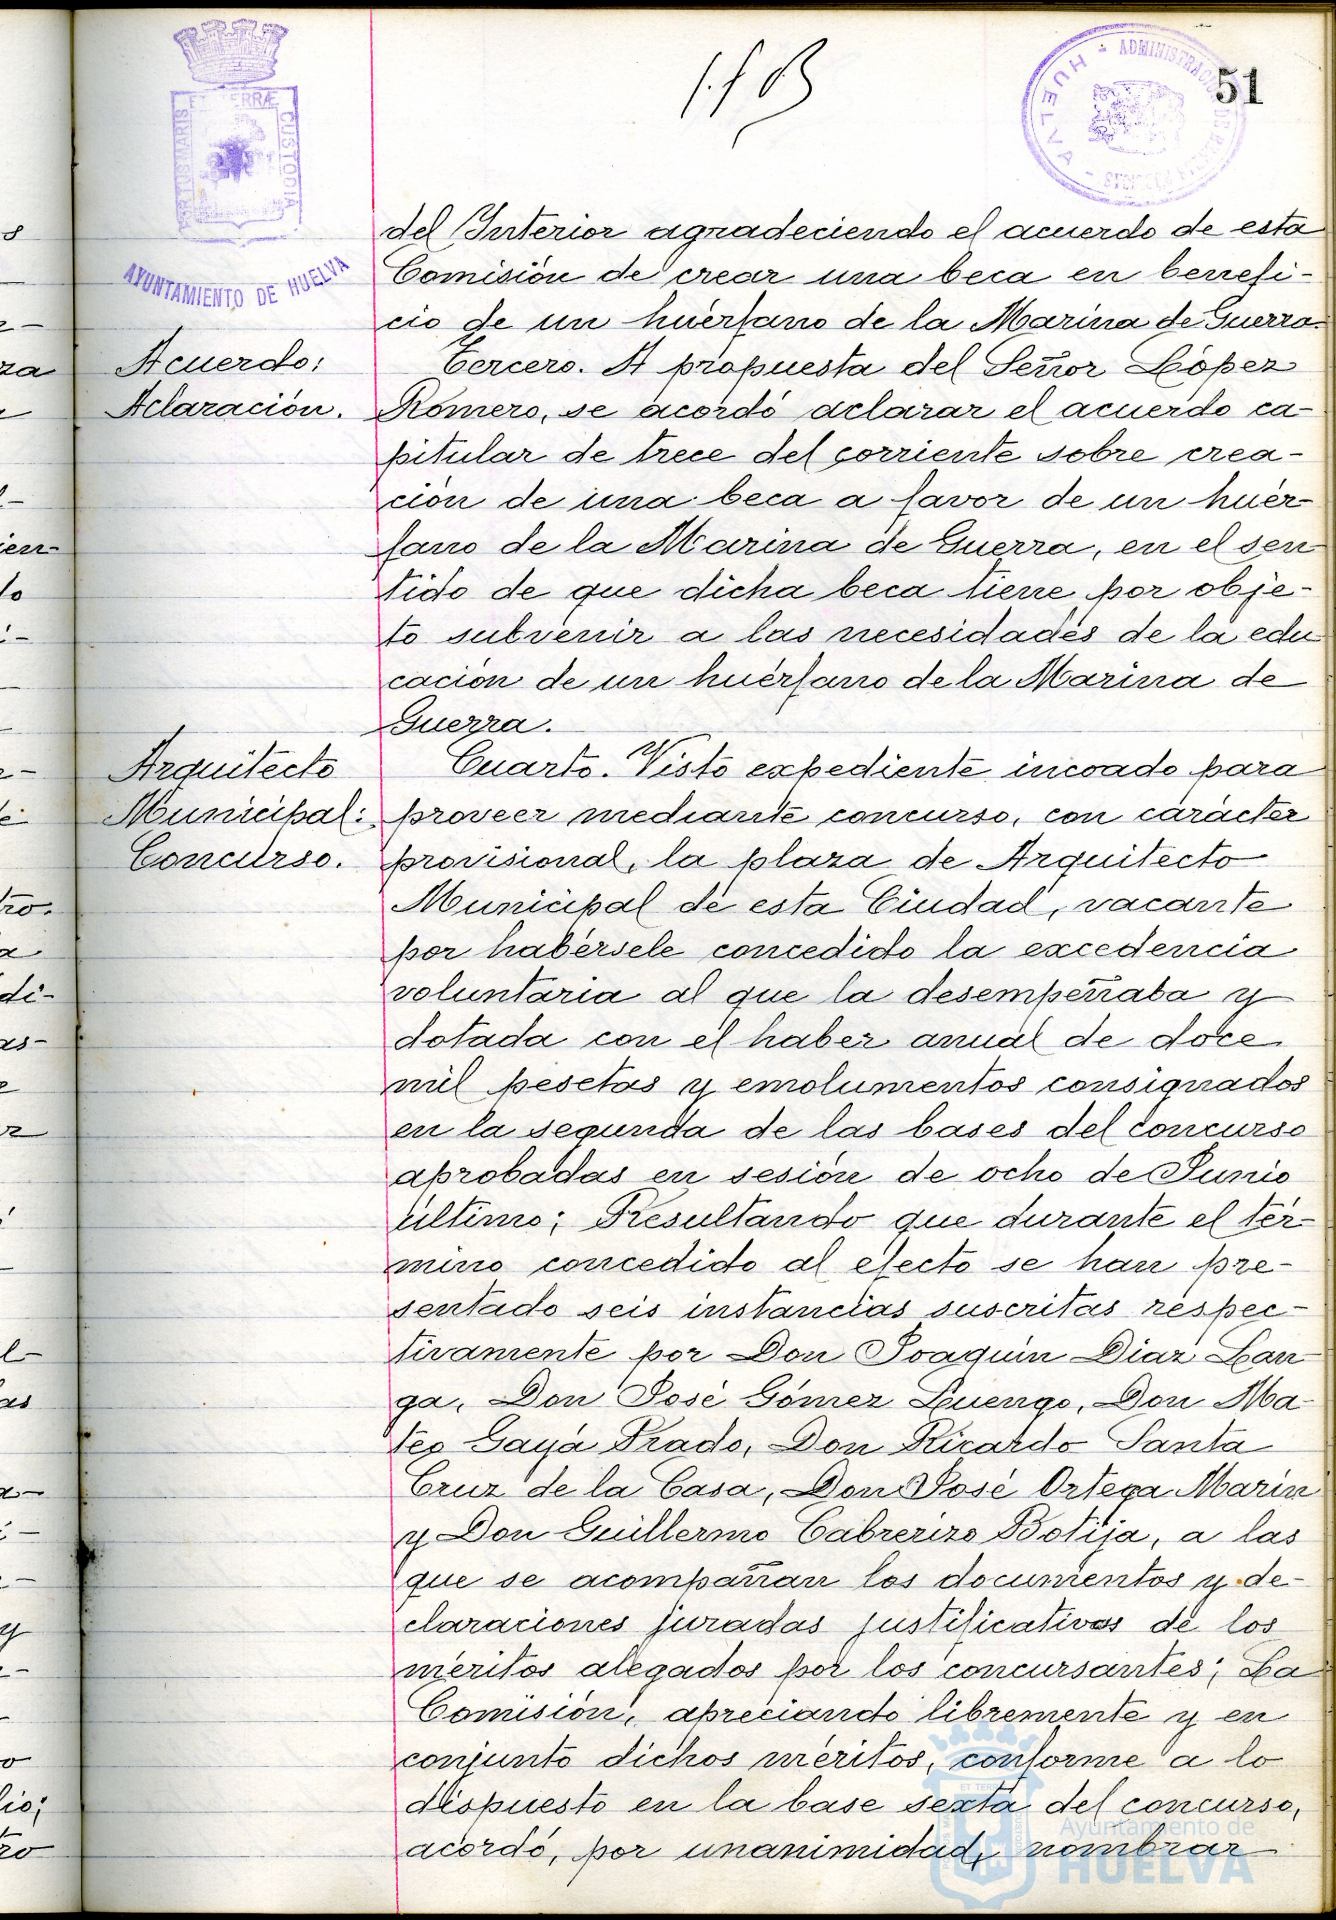 51
PORTUS MARIS ET TERRÆ CUSTODIA
AYUNTAMIENTO DE HUELVA
ADMINISTRACION DE
HUELVA
del Interior agradeciendo el acuerdo de esta
Comisión de crear una beca en benefi-
cio de un huérfano de la Marina de Guerra.
Acuerdo:
Aclaración.
Tercero. A propuesta del Señor López
Romero, se acordó aclarar el acuerdo ca-
pitular de trece del corriente sobre crea-
ción de una beca a favor de un huér-
fano de la Marina de Guerra, en el sen-
tido de que dicha beca tiene por obje-
to subvenir a las necesidades de la edu
cación de un huérfano de la Marina de
Guerra.
Arquitecto
Municipal:
Concurso.
Cuarto. Visto expediente incoado para
proveer mediante concurso, con carácter
provisional, la plaza de Arquitecto
Municipal de esta Ciudad, vacante
por habérsele concedido la excedencia
voluntaria al que la desempeñaba y
dotada con el haber anual de doce
mil pesetas y emolumentos consignados
en la segunda de las bases del concurso
aprobadas en sesión de ocho de Junio
último; Resultando que durante el tér-
mino concedido al efecto se han pre-
sentado seis instancias suscritas respec-
tivamente por Don Joaquín Díaz Lan-
ga, Don José Gómez Luengo, Don Ma-
teo Gayá Prado, Don Ricardo Santa
Cruz de la Casa, Don José Ortega Marín
y Don Guillermo Cabrerizo Botija, a las
que se acompañan los documentos y de-
claraciones juradas justificativos de los
méritos alegados por los concursantes; La
Comisión, apreciando libremente y en
conjunto dichos méritos, conforme a lo
dispuesto en la base sexta del concurso,
acordó, por unanimidad, nombrar
Ayuntamiento de
HUELVA